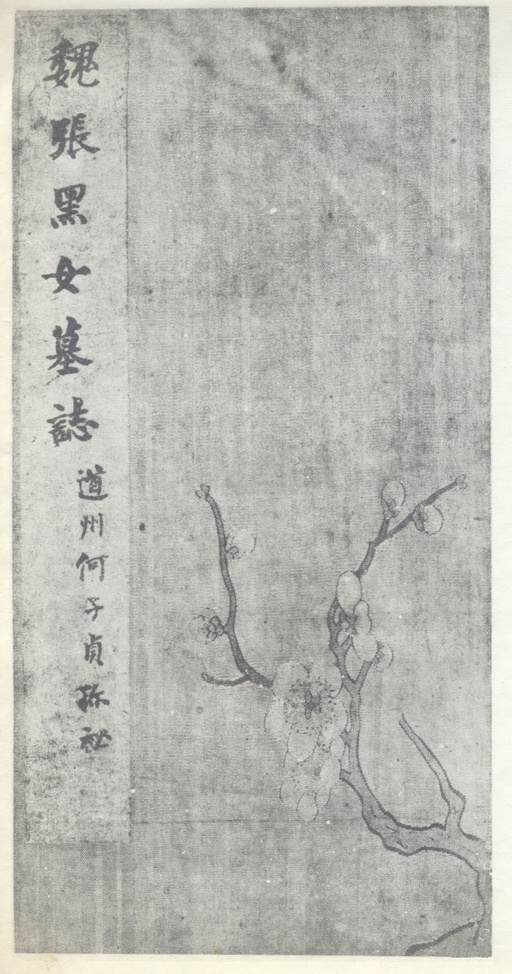 魏張黑女墓誌
道州何子貞珎秘